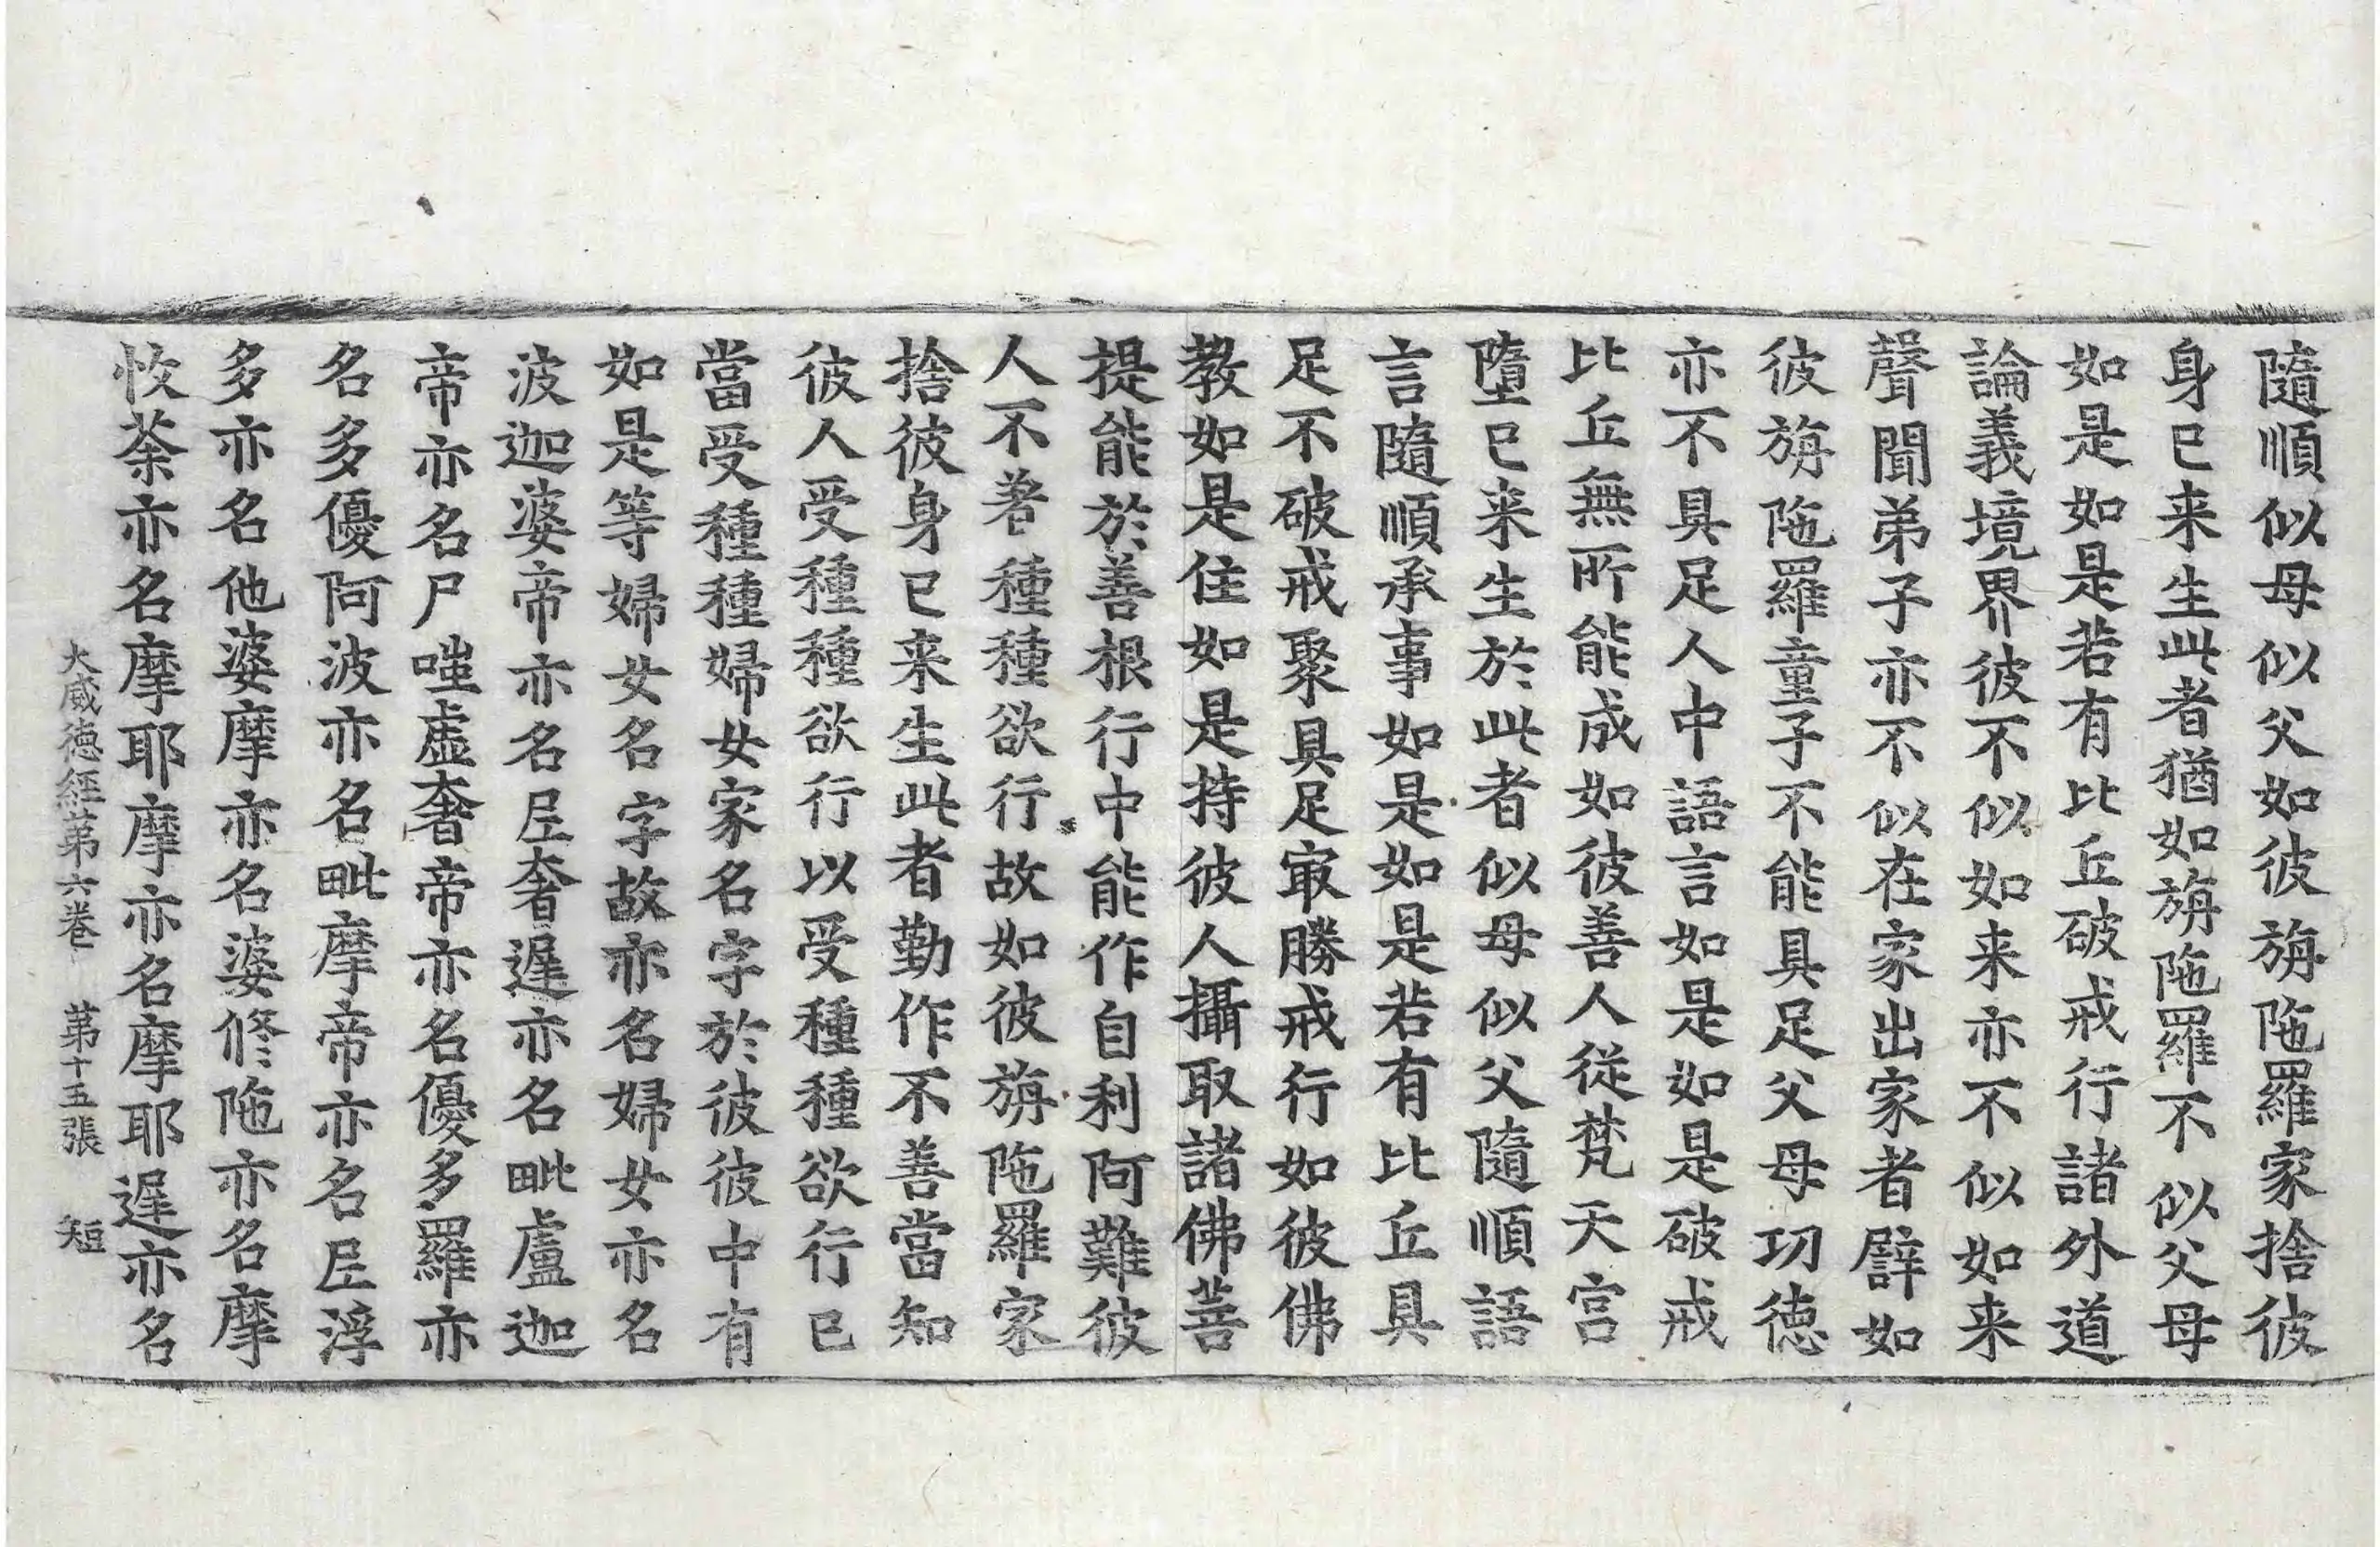 隨順似母似父如彼旃陁羅家捨彼
身已来生此者猶如旃陁羅不似父母
如是如是若有比丘破戒行諸外道
論義境界彼不似如来亦不似如来
聲聞弟子亦不似在家出家者譬如
彼旃陁羅童子不能具足父母功德
亦不具足人中語言如是如是破戒
比丘無所能成如彼善人從梵天宫
墮已来生於此者似母似父隨順語
言隨順承事如是如是若有比丘具
足不破戒聚具足㝡勝戒行如彼佛
教如是住如是持彼人攝取諸佛菩
提能於善根行中能作自利阿難彼
人不著種種欲行故如彼旃陁羅家
捨彼身已来生此者勤作不善當知
彼人受種種欲行以受種種欲行已
當受種種婦女家名字於彼彼中有
如是等婦女名字故亦名婦女亦名
波迦婆帝亦名𡰱奢遲亦名毗盧迦
帝亦名尸嗤虛奢帝亦名優多羅亦
名多優阿波亦名毗摩帝亦名𡰱浮
多亦名他婆摩亦名婆修陁亦名摩
恔荼亦名摩耶摩亦名摩耶遲亦名
大威德經第六卷　第十五張　短